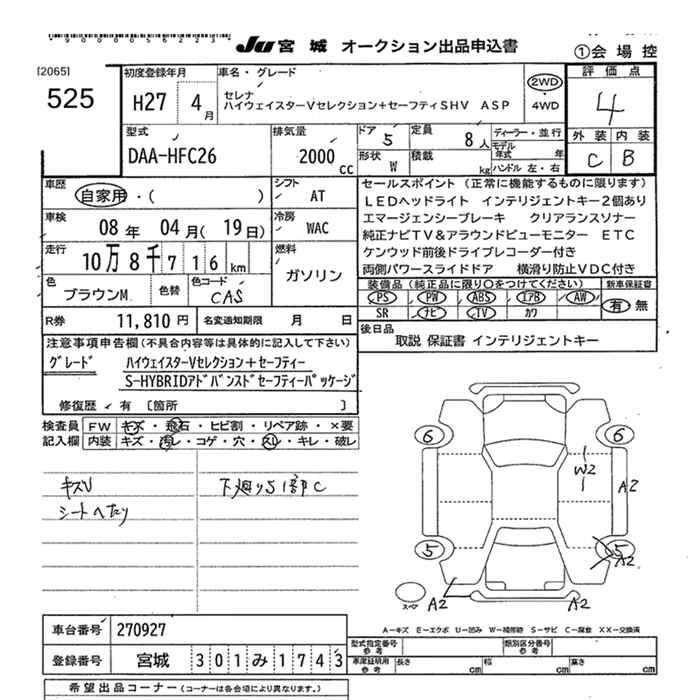 JU 宮城 オークション出品申込書
①会場控
[2065]
525
初度登録年月
H27 4月
車名・グレード
セレナ
ハイウェイスターVセレクション+セーフティSHV ASP
2WD
4WD
評価点
4
外装 内装
C B
型式
DAA-HFC26
排気量
2000 cc
ドア 5
定員 8人
形状 W
積載 kg
ディーラー・並行
モデル年式 年
ハンドル 左・右
車歴
自家用・( )
シフト
AT
車検
08年 04月(19日)
冷房
WAC
走行
10万8千716km
燃料
ガソリン
色
ブラウンM
色替
色コード
CAS
R券 11,810円
名変通知期限 月 日
セールスポイント (正常に機能するものに限ります)
LEDヘッドライト インテリジェントキー2個あり
エマージェンシーブレーキ クリアランスソナー
純正ナビTV&アラウンドビューモニター ETC
ケンウッド前後ドライブレコーダー付き
両側パワースライドドア 横滑り防止VDC付き
装備品(純正品に限り〇をつけてください)
新車保証書
PS PW ABS エアB AW
SR ナビ TV カワ
有 無
後日品
取説 保証書 インテリジェントキー
注意事項申告欄(不具合内容等は具体的に記入して下さい)
グレード ハイウェイスターVセレクション+セーフティー
S-HYBRIDアドバンスドセーフティーパッケージ
修復歴・有 [箇所 ]
検査員記入欄
FW キズ・飛石・ヒビ割・リペア跡・×要
内装 キズ・汚レ・コゲ・穴・スレ・キレ・破レ
キズV
シートへたり
下廻りS1部C
6 6
W2
A2
5 5
A2
スペア
A2
A2
A-キズ E-エクボ U-凹み W-補修跡 S-サビ C-腐食 XX-交換済
車台番号 270927
登録番号 宮城 301み1743
型式指定番号 参考
類別区分番号 参考
車庫証明用 参考
長さ cm 幅 cm 高さ cm
希望出品コーナー(コーナーは各会場により異なります。)